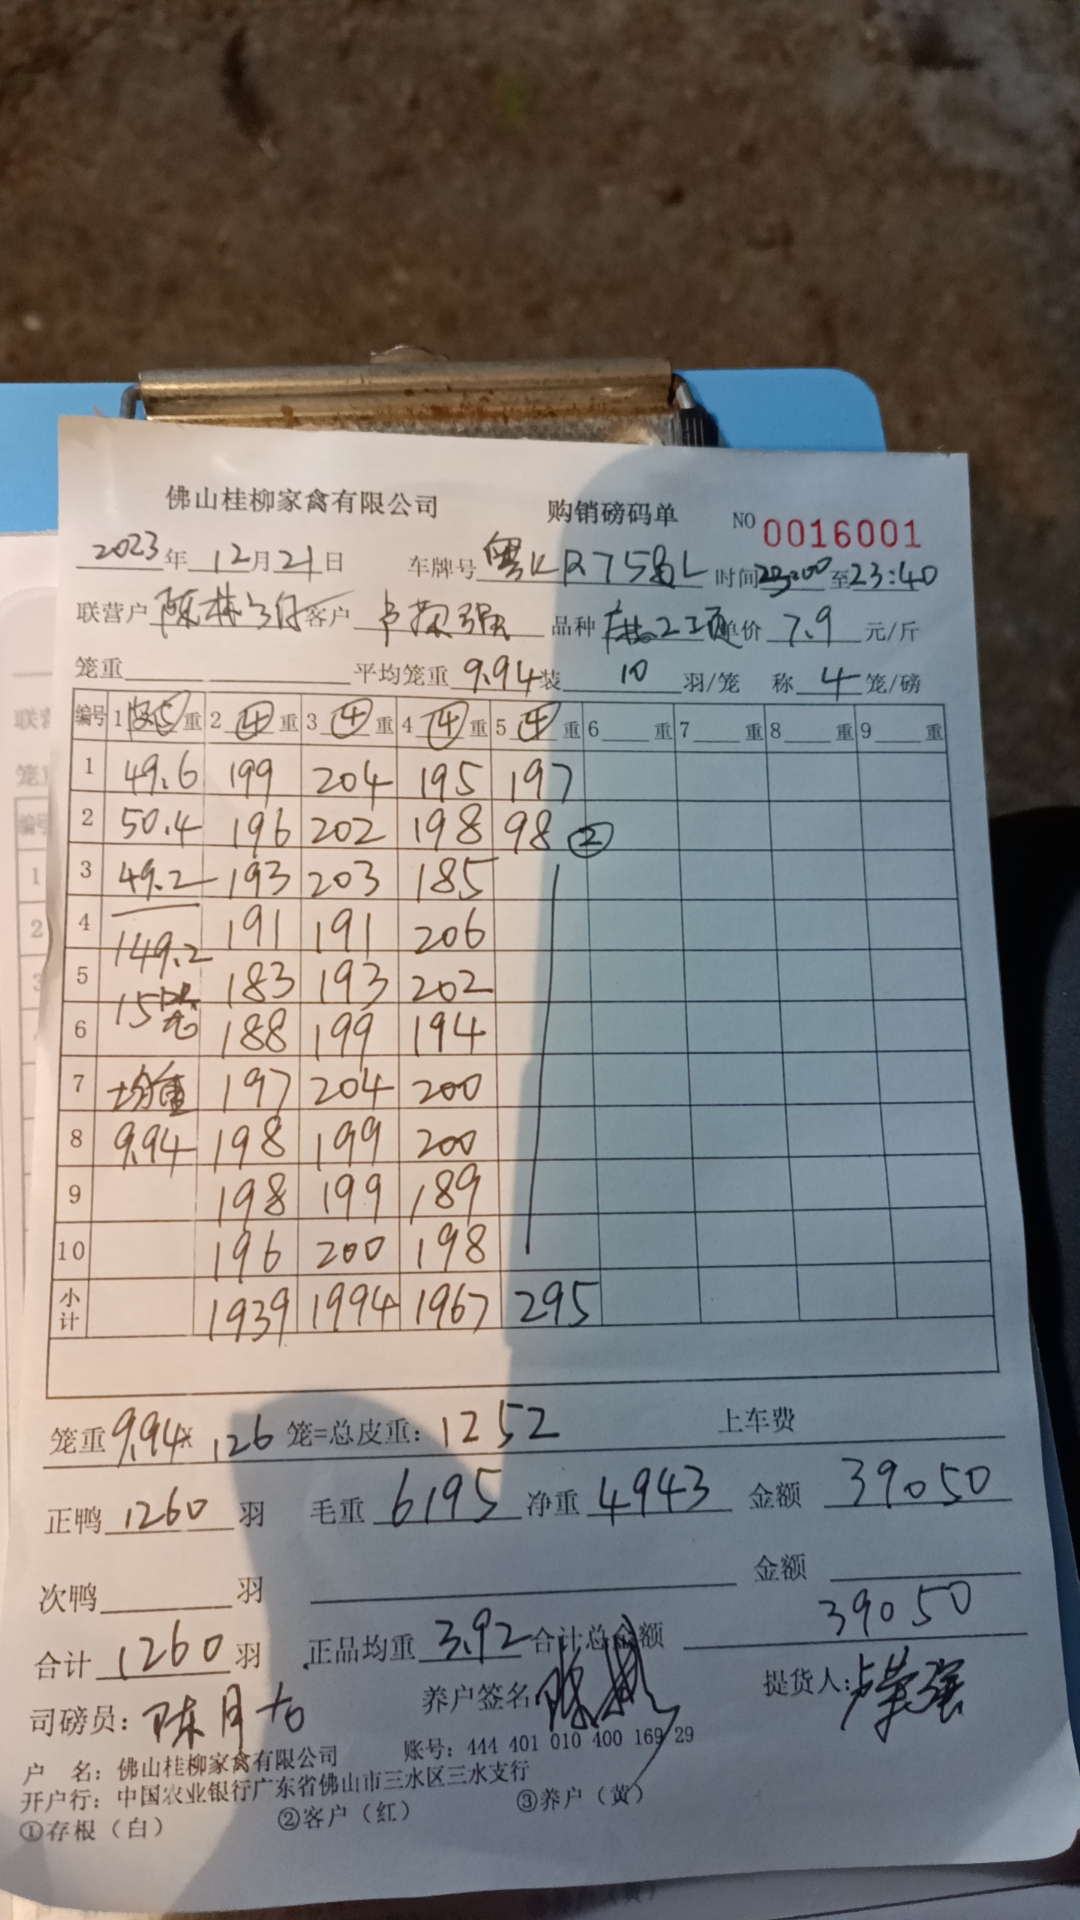 佛山桂柳家禽有限公司 购销磅码单 NO 0016001
2023年 12月21日 车牌号 粤KR75 L 时间23:00至23:40
联营户 陈 客户 卢荣强 品种 单价 7.9 元/斤
笼重 平均笼重 9.94 装 10 羽/笼 称 4 笼/磅
编号 1 皮⑤ 重 2 ④ 重 3 ④ 重 4 ④ 重 5 ④ 重 6 重 7 重 8 重 9 重
1 49.6 199 204 195 197
2 50.4 196 202 198 98 ②
3 49.2 193 203 185
4 149.2 191 191 206
5 15笼 183 193 202
6 188 199 194
7 均重 197 204 200
8 9.94 198 199 200
9 198 199 189
10 196 200 198
小计 1939 1994 1967 295
笼重 9.94× 126 笼=总皮重: 1252 上车费
正鸭 1260 羽 毛重 6195 净重 4943 金额 39050
次鸭 羽 金额
合计 1260 羽 正品均重 3.92 合计总金额 39050
司磅员: 陈月 养户签名 陈 提货人: 卢荣强
户 名: 佛山桂柳家禽有限公司 账号: 444 401 010 400 169 29
开户行: 中国农业银行广东省佛山市三水区三水支行
①存根（白） ②客户（红） ③养户（黄）